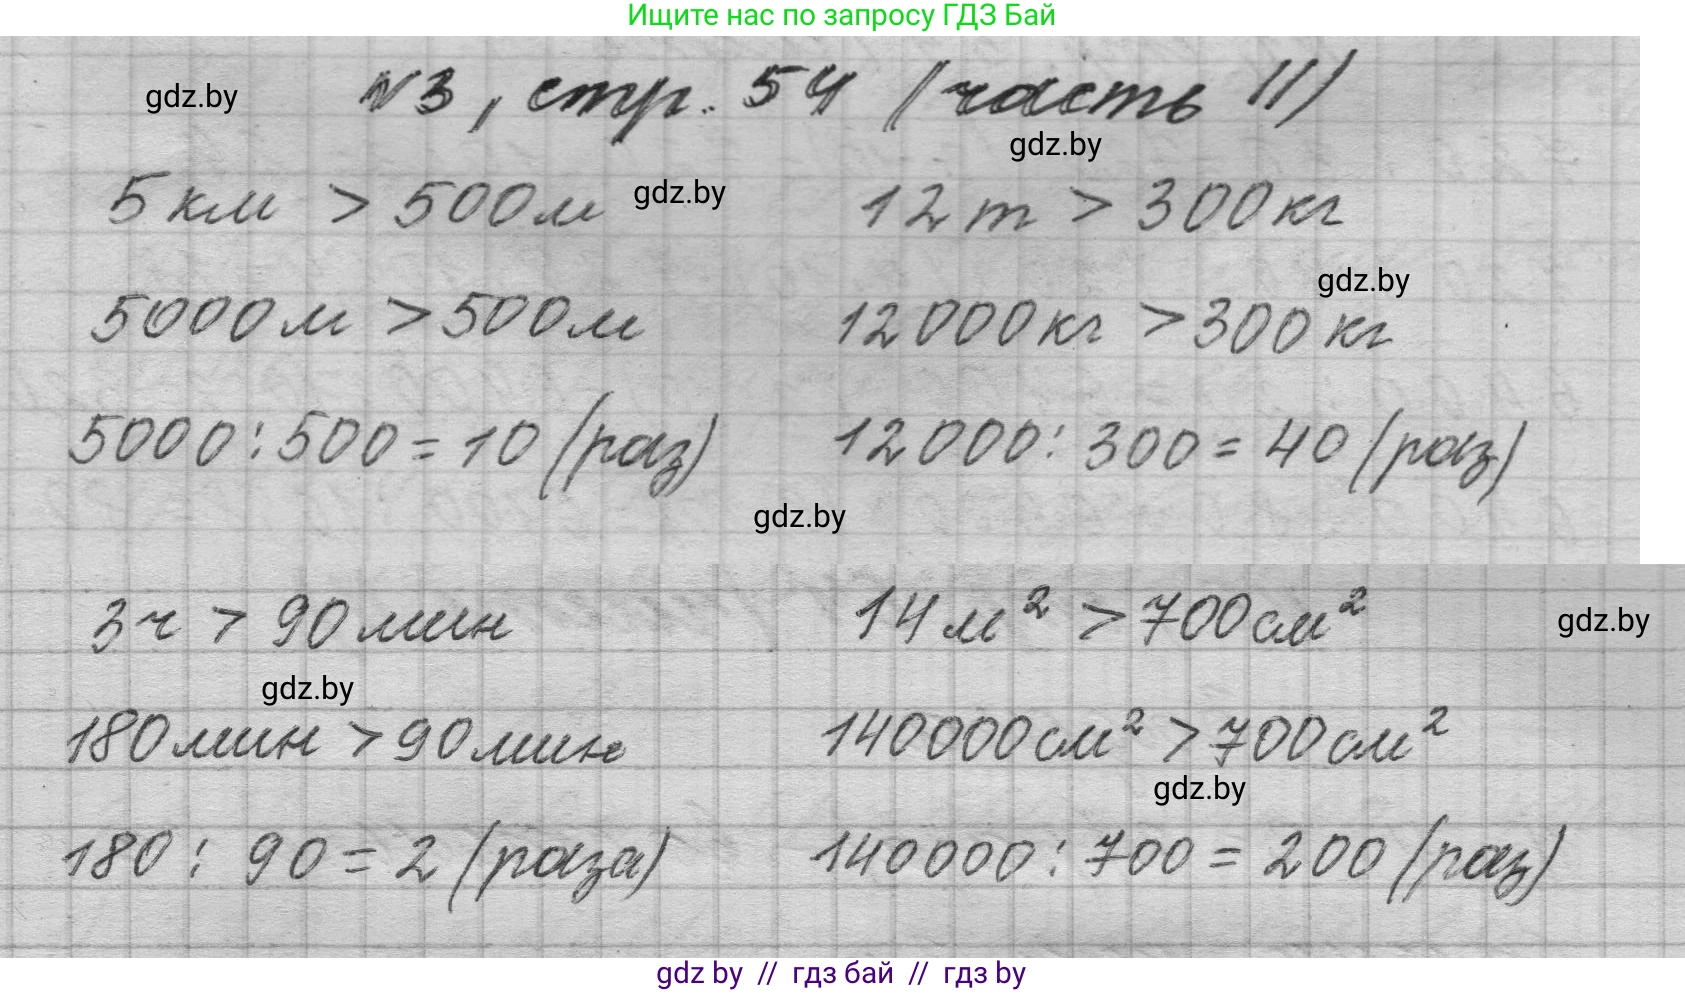 Ищите нас по запросу ГДЗ Бай
gdz.by
N3, стр. 54 (часть II)
gdz.by
5 км > 500 м
gdz.by
12 т > 300 кг
gdz.by
5000 м > 500 м
12000 кг > 300 кг
5000 : 500 = 10 (раз)
12000 : 300 = 40 (раз)
gdz.by
3 ч > 90 мин
14 м² > 700 см²
gdz.by
gdz.by
180 мин > 90 мин
140000 см² > 700 см²
gdz.by
180 : 90 = 2 (раза)
140000 : 700 = 200 (раз)
gdz by // гдз бай // гдз by